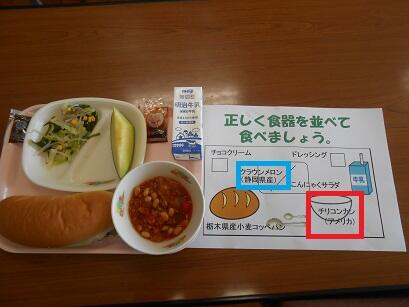 正しく食器を並べて
食べましょう。
チョコクリーム
ドレッシング
クラウンメロン
(静岡県産)
こんにゃくサラダ
牛乳
チリコンカン
(アメリカ)
栃木県産小麦コッペパン
明治牛乳